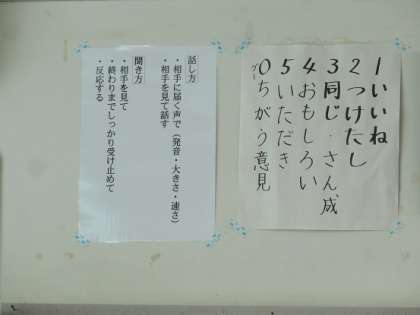 1いいね
2つけたし
3同じ・さん成
4おもしろい
5いただき
0ちがう意見
グー
話し方
・相手に届く声で（発音・大きさ・速さ）
・相手を見て話す
聞き方
・相手を見て
・終わりまでしっかり受け止めて
・反応する